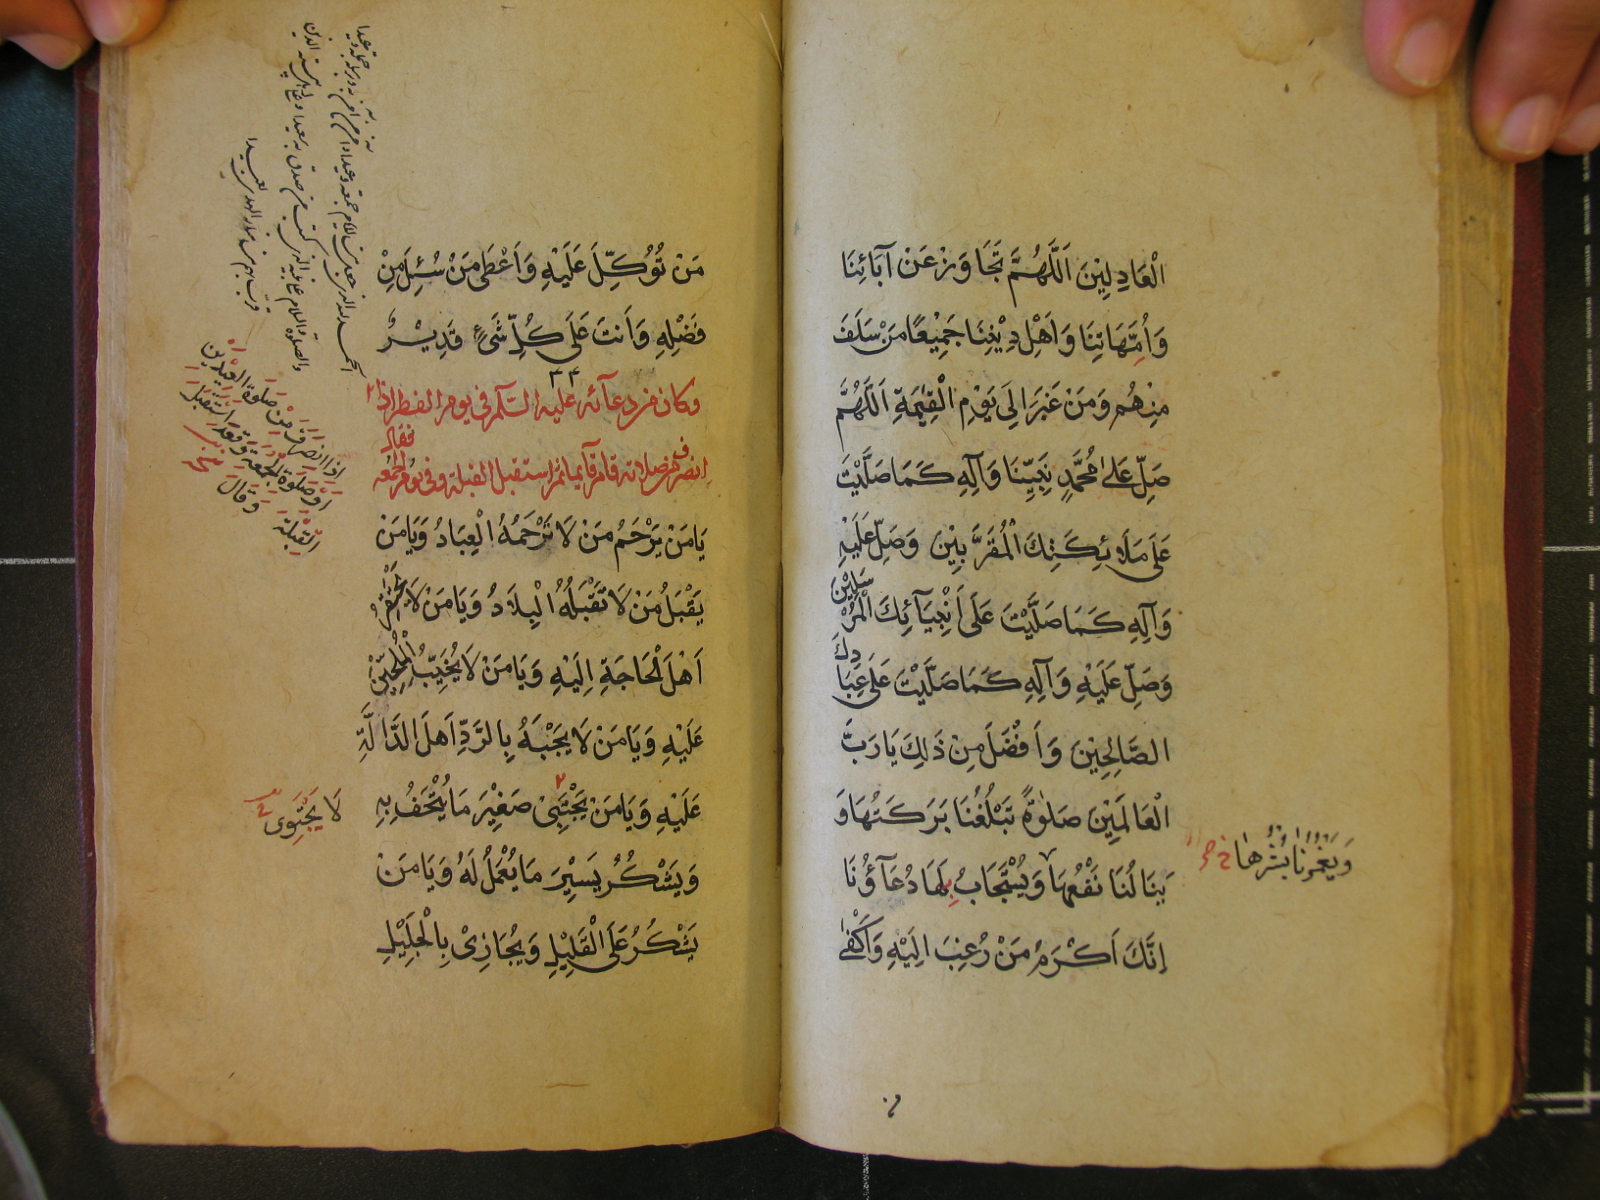 الْعَادِلِيْنَ اَللّٰهُمَّ تَجَاوَزْ عَنْ آبَائِنَا
وَاُمَّهَاتِنَا وَاَهْلِ دِيْنِنَا جَمِيْعًا مَنْ سَلَفَ
مِنْهُمْ وَمَنْ غَبَرَ اِلَى يَوْمِ الْقِيٰمَةِ اَللّٰهُمَّ
صَلِّ عَلٰى مُحَمَّدٍ نَبِيِّنَا وَآلِهِ كَمَا صَلَّيْتَ
عَلَى مَلَائِكَتِكَ الْمُقَرَّبِيْنَ وَصَلِّ عَلَيْهِ
وَآلِهِ كَمَا صَلَّيْتَ عَلَى اَنْبِيَآئِكَ الْمُرْسَلِيْنَ
وَصَلِّ عَلَيْهِ وَآلِهِ كَمَا صَلَّيْتَ عَلَى عِبَادِكَ
الصَّالِحِيْنَ وَاَفْضَلَ مِنْ ذٰلِكَ يَا رَبَّ
الْعَالَمِيْنَ صَلٰوةً تَبْلُغُنَا بَرَكَتُهَا وَ
يَنَالُنَا نَفْعُهَا وَيُسْتَجَابُ بِهَا دُعَآؤُنَا
اِنَّكَ اَكْرَمُ مَنْ رُغِبَ اِلَيْهِ وَاَكْفٰى
وَيَغْمُرُنَا يُسْرُهَا
مَنْ تُوُكِّلَ عَلَيْهِ وَاَعْطٰى مَنْ سُئِلَ مِنْ
فَضْلِهِ وَاَنْتَ عَلَى كُلِّ شَىْءٍ قَدِيْرٌ
وكان من دعآئه عليه السّلام فى يوم الفطر اذا
انصرف من صلاته قام قآيما ثم استقبل القبلة وفى يوم الجمعه فقال
يَا مَنْ يَرْحَمُ مَنْ لَا تَرْحَمُهُ الْعِبَادُ وَيَا مَنْ
يَقْبَلُ مَنْ لَا تَقْبَلُهُ الْبِلَادُ وَيَا مَنْ لَا يَحْتَقِرُ
اَهْلَ الْحَاجَةِ اِلَيْهِ وَيَا مَنْ لَا يُخَيِّبُ الْمُلِحِّيْنَ
عَلَيْهِ وَيَا مَنْ لَا يَجْبَهُ بِالرَّدِّ اَهْلَ الدَّالَّةِ
عَلَيْهِ وَيَا مَنْ يَجْتَبِىْ صَغِيْرَ مَا يُتْحَفُ بِهِ
وَيَشْكُرُ يَسِيْرَ مَا يُعْمَلُ لَهُ وَيَا مَنْ
يَشْكُرُ عَلَى الْقَلِيْلِ وَيُجَازِىْ بِالْجَلِيْلِ
اِذَا انْصَرَفَ مِنْ صَلٰوةِ الْعِيْدَيْنِ
اَوْ صَلٰوةِ الْجُمُعَةِ وَقَعَدَ اسْتَقْبَلَ
الْقِبْلَةَ وَقَالَ
لَا يَجْتَوِى